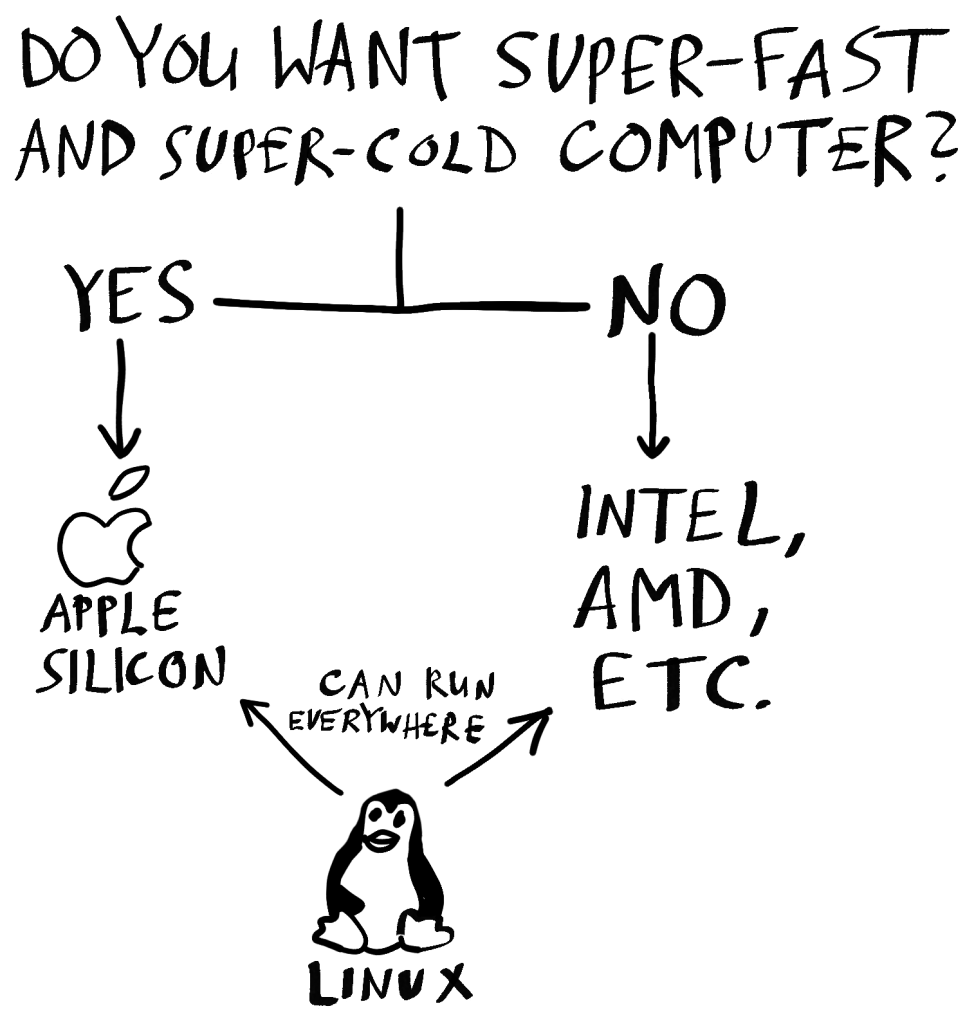 DO YOU WANT SUPER-FAST
AND SUPER-COLD COMPUTER?
YES
NO
APPLE
SILICON
INTEL,
AMD,
ETC.
CAN RUN
EVERYWHERE
LINUX